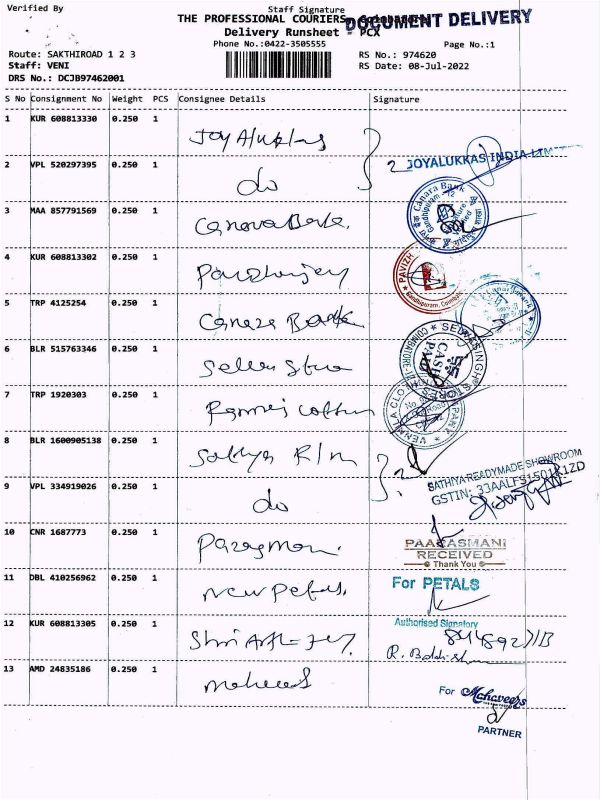 Verified By
Staff Signature
THE PROFESSIONAL COURIERS, Coimbatore
DOCUMENT DELIVERY
Delivery Runsheet - PCX
Phone No.:0422-3505555
Page No.:1
Route: SAKTHIROAD 1 2 3
RS No.: 974620
Staff: VENI
RS Date: 08-Jul-2022
DRS No.: DCJB97462001
S No Consignment No Weight PCS Consignee Details Signature
1 KUR 608813330 0.250 1 Joy Alukkas
2 VPL 520297395 0.250 1 do
2 JOYALUKKAS INDIA LIMITED
3 MAA 857791569 0.250 1 Canara Bank
Canara Bank
Gandhipuram
4 KUR 608813302 0.250 1
PAVIZH
Gandhipuram, Coimbatore
5 TRP 4125254 0.250 1 Canara Bank
6 BLR 515763346 0.250 1 Selvasingh Store
SELVASINGH STORES
CASH PAID
COIMBATORE-12
7 TRP 1920303 0.250 1
8 BLR 1600905138 0.250 1 Sathya R/m
9 VPL 334919026 0.250 1 do
2
SATHIYA READYMADE SHOWROOM
GSTIN: 33AALFS1501K1ZD
10 CNR 1687773 0.250 1 Parasmani
PAARASMANI
RECEIVED
Thank You
11 DBL 410256962 0.250 1 New Petals
For PETALS
Authorised Signatory
12 KUR 608813305 0.250 1
13 AMD 24835186 0.250 1
For Mahaveers
PARTNER